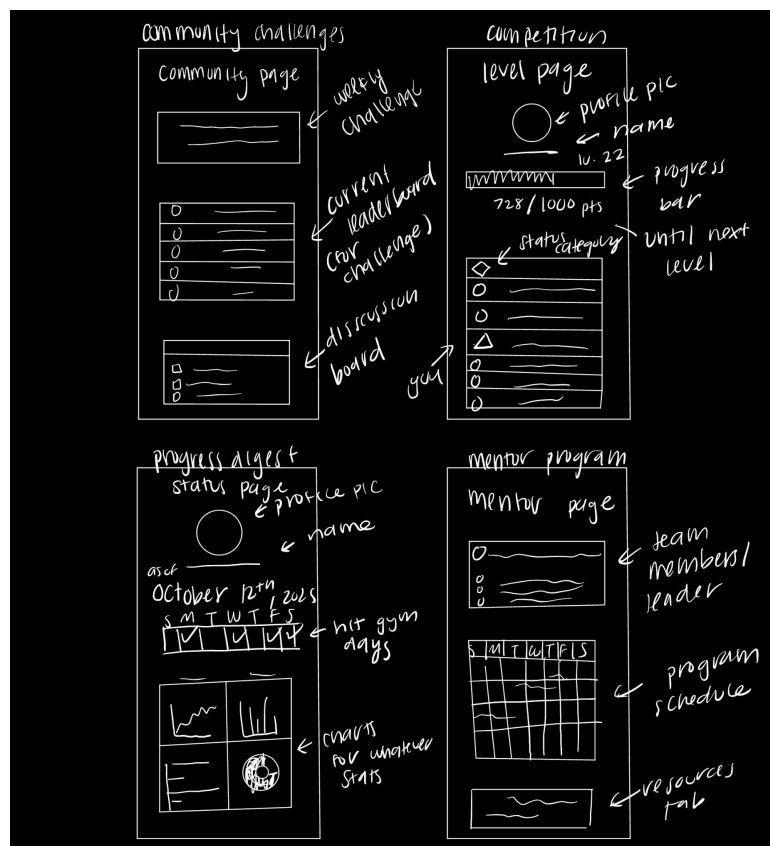 community challenges
community page
weekly
challenge
current
leaderboard
(for
challenge)
discussion
board
competition
level page
profile pic
name
lv. 22
progress
bar
728/1000 pts
until next
level
status
category
you
progress digest
status page
profile pic
name
as of
October 12th, 2025
S M T W T F S
hit gym
days
charts
for whatever
stats
mentor program
mentor page
team
members/
leader
S M T W T F S
program
schedule
resources
tab